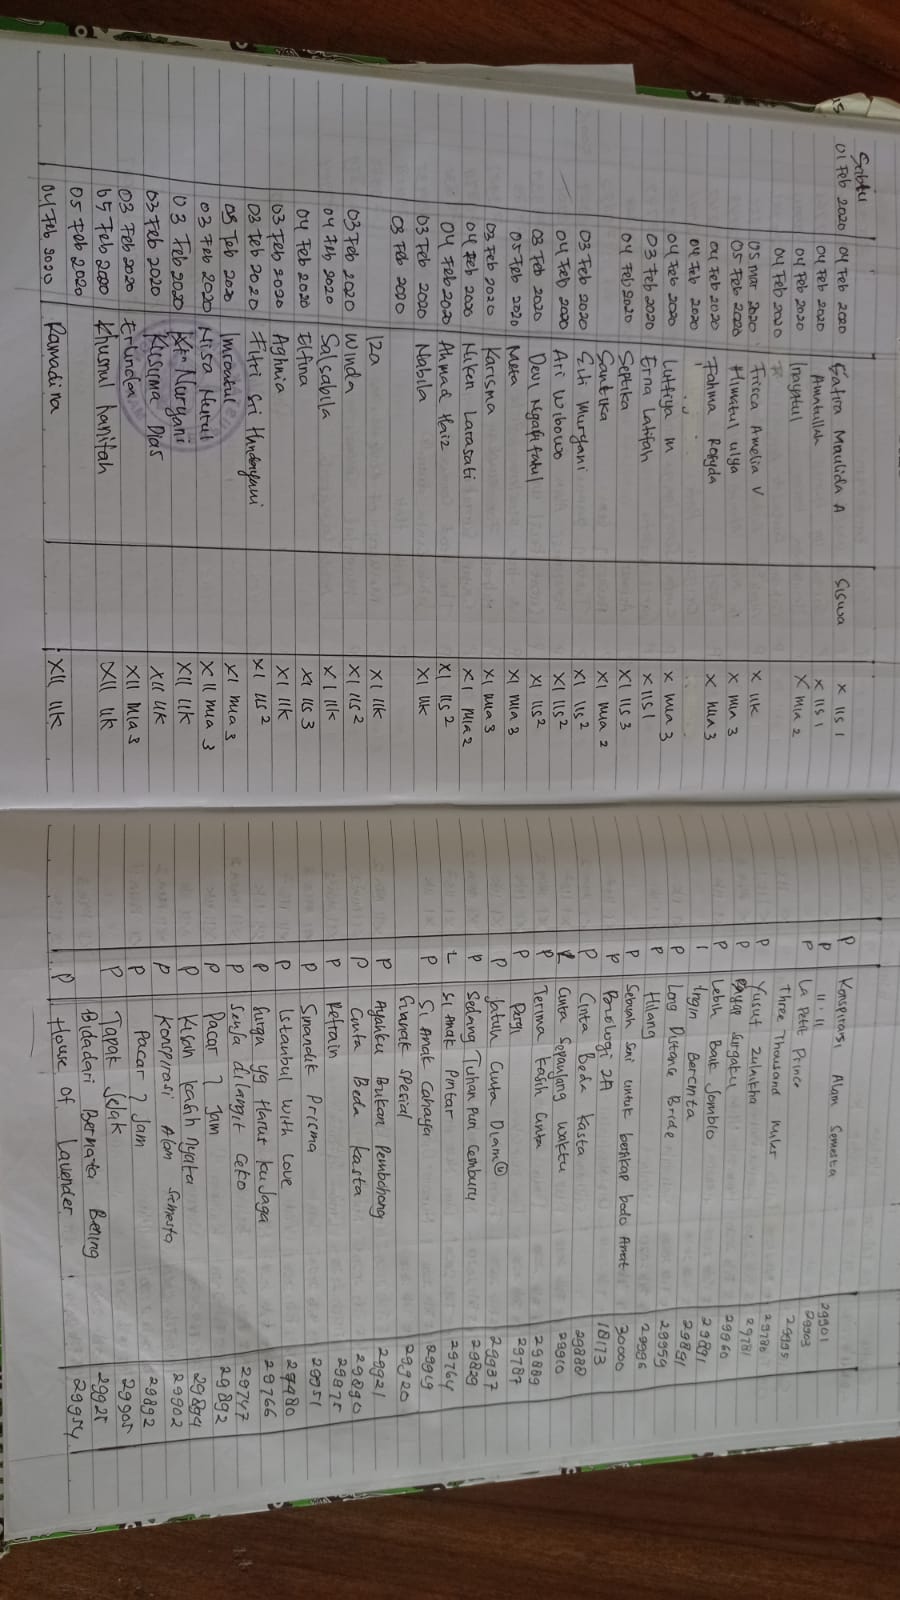 Sabtu
01 Feb 2020 04 Feb 2020 Safira Maulida A Siswa X IIS 1 P Konspirasi Alam Semesta 29901
04 Feb 2020 Amatullah X IIS 1 P 11.11 29903
04 Feb 2020 Inayatul X MIA 2 P La Petit Prince
04 Feb 2020 Three Thousand Miles 29995
05 Mar 2020 Frisca Amelia V X IIK P Yusuf Zulaikha 29780
05 Feb 2020 Himatul Ulya X MIA 3 P Surgaku 29781
04 Feb 2020 Fahma Rosyda X MIA 3 P Lebih Baik Jomblo 29960
04 Feb 2020 Ingin Bercinta 29891
04 Feb 2020 Lutfiya M X MIA 3 P Long Distance Bride 29891
03 Feb 2020 Erna Latifah X IIS 1 P Hilang 29959
04 Feb 2020 Septika XI IIS 3 P Sebuah Seni untuk bersikap bodo Amat 29996
Santika XI MIA 2 P 2A 30000
03 Feb 2020 Siti Muryani XI IIS 2 P Cinta Beda Kasta 18173
04 Feb 2020 Ari Wibowo XI IIS 2 Cinta Sepanjang Waktu 29888
03 Feb 2020 Devi Ngafifatul XI IIS 2 P Terima Kasih Cinta 29910
05 Feb 2020 Meta XI MIA 3 P Pergi 29889
03 Feb 2020 Karisma XI MIA 3 P Jatuh Cinta Diam© 29787
04 Feb 2020 Niken Larasati XI MIA 2 P Sedang Tuhan pun Cemburu 29937
04 Feb 2020 Ahmad Faiz XI IIS 2 L Si Anak Pintar 29829
03 Feb 2020 Nabila XI IIK P Si Anak Cahaya 29764
03 Feb 2020 Si Anak Spesial 29919
Iza XI IIK P Ayahku Bukan Pembohong 29920
03 Feb 2020 Winda XI IIS 2 P Cinta Beda Kasta 29921
04 Feb 2020 Salsabila XI IIK P Refrain 29890
04 Feb 2020 Elfina XI IIS 3 P Smandit Prisma 29975
03 Feb 2020 Aghnia XI IIK P Istanbul with Love 29951
03 Feb 2020 Fitri Sri Handayani XI IIS 2 P Surga yg Harus Kujaga 29980
05 Feb 2020 Imroatul XI MIA 3 P Senja dilangit Ceko 29766
03 Feb 2020 Nisa Nurul XII MIA 3 P Pacar 7 Jam 29747
03 Feb 2020 Nuryani XII IIK P Kisah Kasih Nyata 29892
03 Feb 2020 Kusirma Dias XII IIK P Konpirasi Alam Semesta 29894
03 Feb 2020 XII MIA 3 P Pacar 7 Jam 29902
05 Feb 2020 Khusnul Hanifah XII IIK P Tapak Jejak 29892
05 Feb 2020 Bidadari Bermata Bening 29905
04 Feb 2020 Ramadina XII IIK P House of Lavender 29925
29954